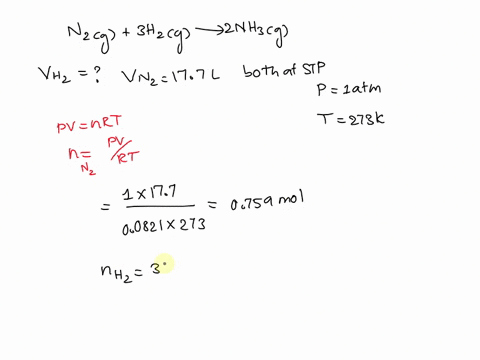 N2(g) + 3H2(g) → 2NH3(g)
VH2 = ? VN2 = 17.7 L both at STP
P = 1 atm
T = 273k
PV = nRT
nN2 = PV/RT
= 1 × 17.7 / 0.0821 × 273 = 0.759 mol
nH2 = 3